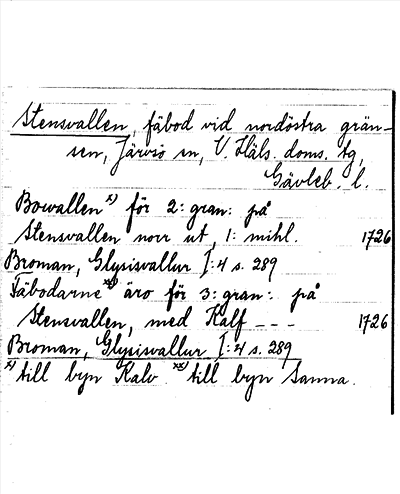 Stensvallen, fäbod vid nordöstra grän-
sen, Järvsö sn, V. Häls. doms. tg,
Gävleb. l.
Bowallen x) för 2: gran: på
Stensvallen norr ut, 1: mihl. 1726
Broman, Glysisvallur I:4 s. 289
Fäbodarne xx) äro för 3: gran: på
Stensvallen, med Kalf - - - 1726
Broman, Glysisvallur I:4 s. 289
x) till byn Kalv xx) till byn Sanna.